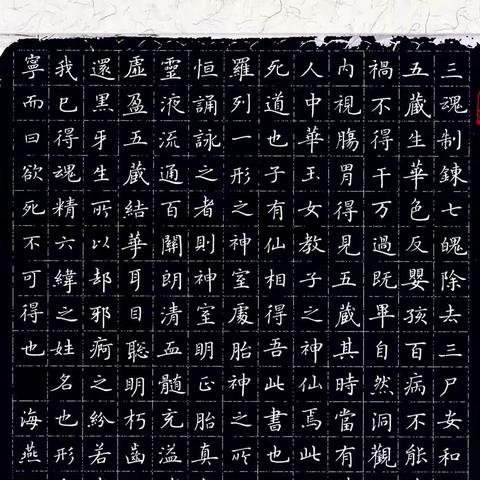 三魂制鍊七魄除去三尸安和
五藏生華色反嬰孩百病不能
禍不得干万過既畢自然洞觀
内視腸胃得見五藏其時當有
人中華玉女教子之神仙焉此
死道也子有仙相得吾此書也
羅列一形之神室處胎神之所
恒誦詠之者則神室明正胎真
靈液流通百關朗清血髓充溢
虛盈五藏結華耳目聰明朽齒
還黑牙生所以却邪痾之紛若
我已得魂精六緯之姓名也形
寧而曰欲死不可得也 海燕